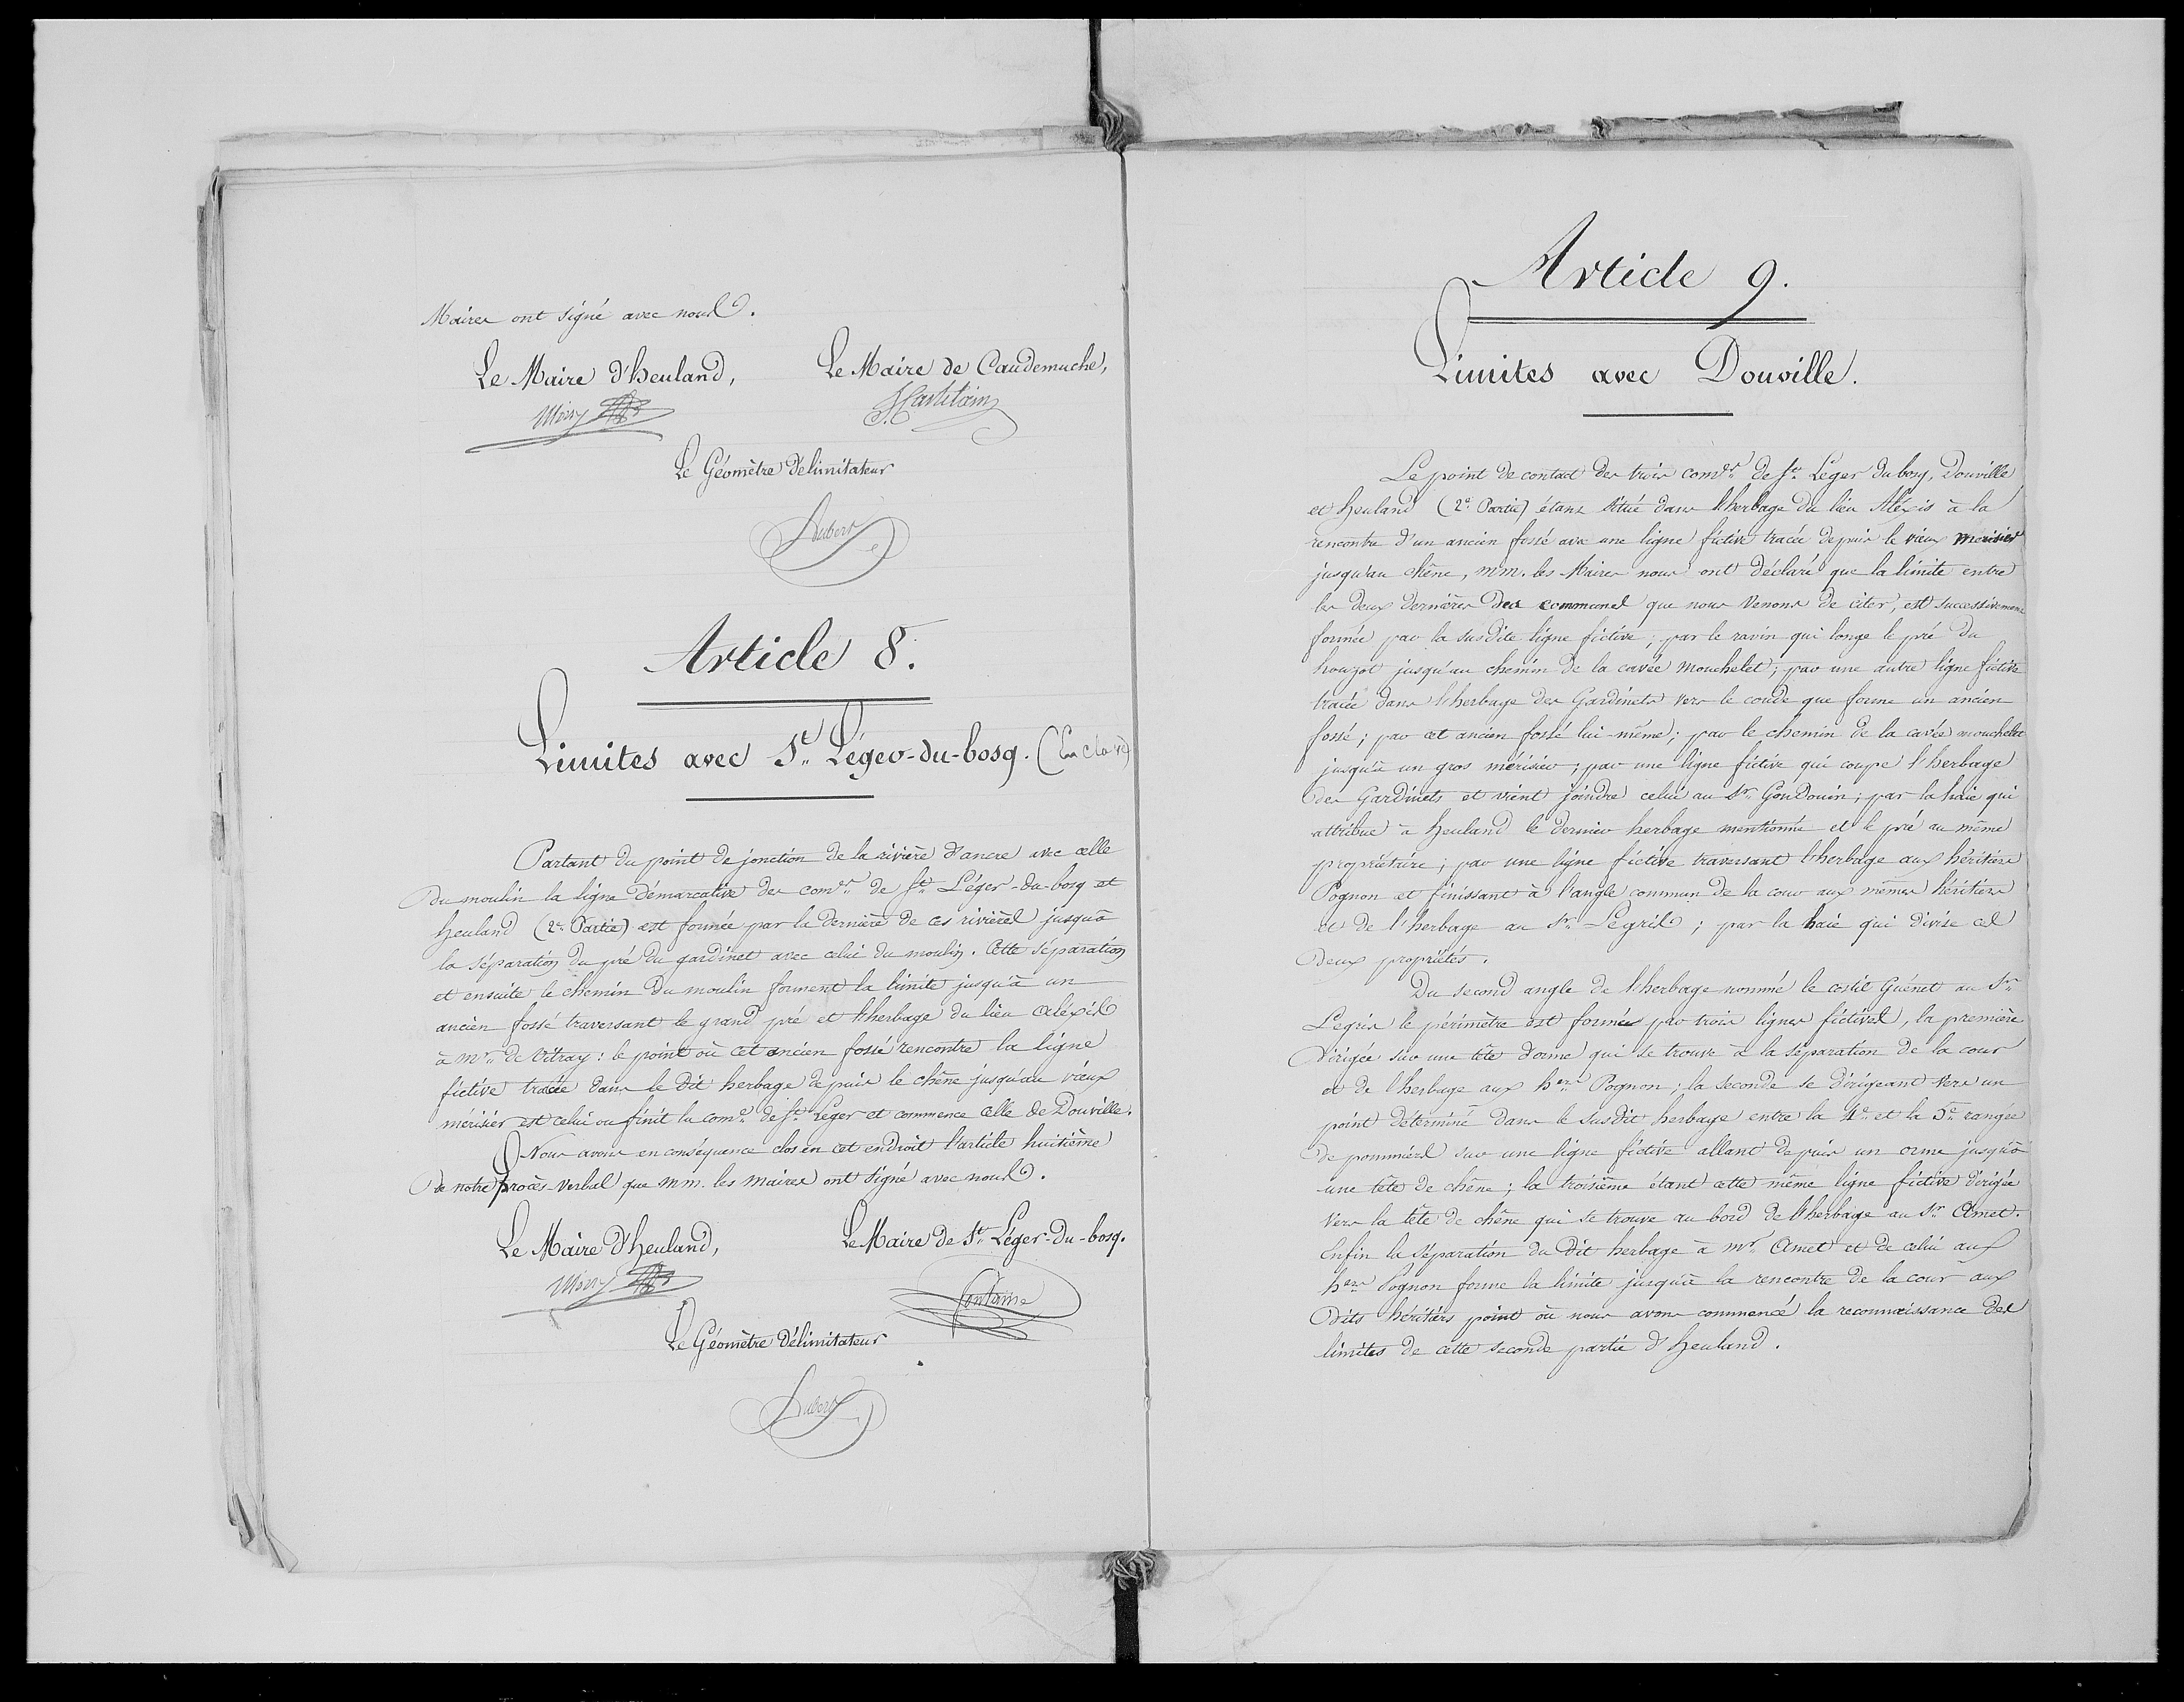 Maires ont signé avec nous.
Le Maire d'heuland,
Le Maire de Caudemuche,
Le Géomètre Délimitateur
Aubert
Article 8.
Limites avec St. Léger-du-bosq. (Enclave)
Partant du point de jonction de la rivière d'ancre avec celle
du moulin la ligne démarcative des comes. de St. Léger-du-bosq et
heuland (2e. Partie) est formée par la dernière de ces rivières jusqu'à
la séparation du pré du gardinet avec celui du moulin. Cette séparation
et ensuite le chemin du moulin forment la limite jusqu'à un
ancien fossé traversant le grand pré et l'herbage du lieu Aléxis
à Mr. de Vitray : le point où cet ancien fossé rencontre la ligne
fictive tracée dans le dit herbage depuis le chêne jusqu'au vieux
mérisier est celui ou finit la come. de St. Léger et commence celle de Douville.
Nous avons en conséquence clos en cet endroit l'article huitième
de notre procès-verbal que mm. les maires ont signé avec nous.
Le Maire d'heuland,
Le Maire de St. Léger-du-bosq.
Fontaine
Le Géomètre Délimitateur
Aubert
Article 9.
Limites avec Douville.
Le point de contact des trois comes. de St. Léger du bosq, Douville
et heuland (2e. Partie) étant situé dans l'herbage du lieu Aléxis à la
rencontre d'un ancien fossé avec une ligne fictive tracée depuis le vieux merisier
jusqu'au chêne, mm. les Maires nous ont déclaré que la limite entre
les deux dernières des communes que nous venons de citer, est successivement
formée par la susdite ligne fictive ; par le ravin qui longe le pré du
jusqu'au chemin de la cavée mouchelet ; par une autre ligne fictive
tracée dans l'herbage des Gardinets vers le coude que forme un ancien
fossé ; par cet ancien fossé lui-même ; par le chemin de la cavée mouchelet
jusqu'à un gros mérisier ; par une ligne fictive qui coupe l'herbage
des Gardinets et vient joindre celui au Sr. Gondouin ; par la haie qui
attribue à heuland le dernier herbage mentionné et le pré au même
propriétaire ; par une ligne fictive traversant l'herbage aux héritiers
Pognon et finissant à l'angle commun de la cour aux mêmes héritiers
et de l'herbage au Sr. Legris ; par la haie qui divise ces
deux propriétés.
Du second angle de l'herbage nommé le costil Guénet au Sr.
Legris le périmètre est formé par trois lignes fictives, la première
dirigée sur une tête d'orme qui se trouve à la séparation de la cour
et de l'herbage aux hers. Pognon ; la seconde se dirigeant vers un
point déterminé dans le susdit herbage entre la 4e. et la 5e. rangée
de pommiers sur une ligne fictive allant depuis un orme jusqu'à
une tête de chêne ; la troisième étant cette même ligne fictive dirigée
vers la tête de chêne qui se trouve au bord de l'herbage au Sr. Amet.
Enfin la séparation du dit herbage à mr. Amet et de celui aux
hers. Pognon forme la limite jusqu'à la rencontre de la cour aux
dits héritiers point où nous avons commencé la reconnaissance des
limites de cette seconde partie d'heuland.